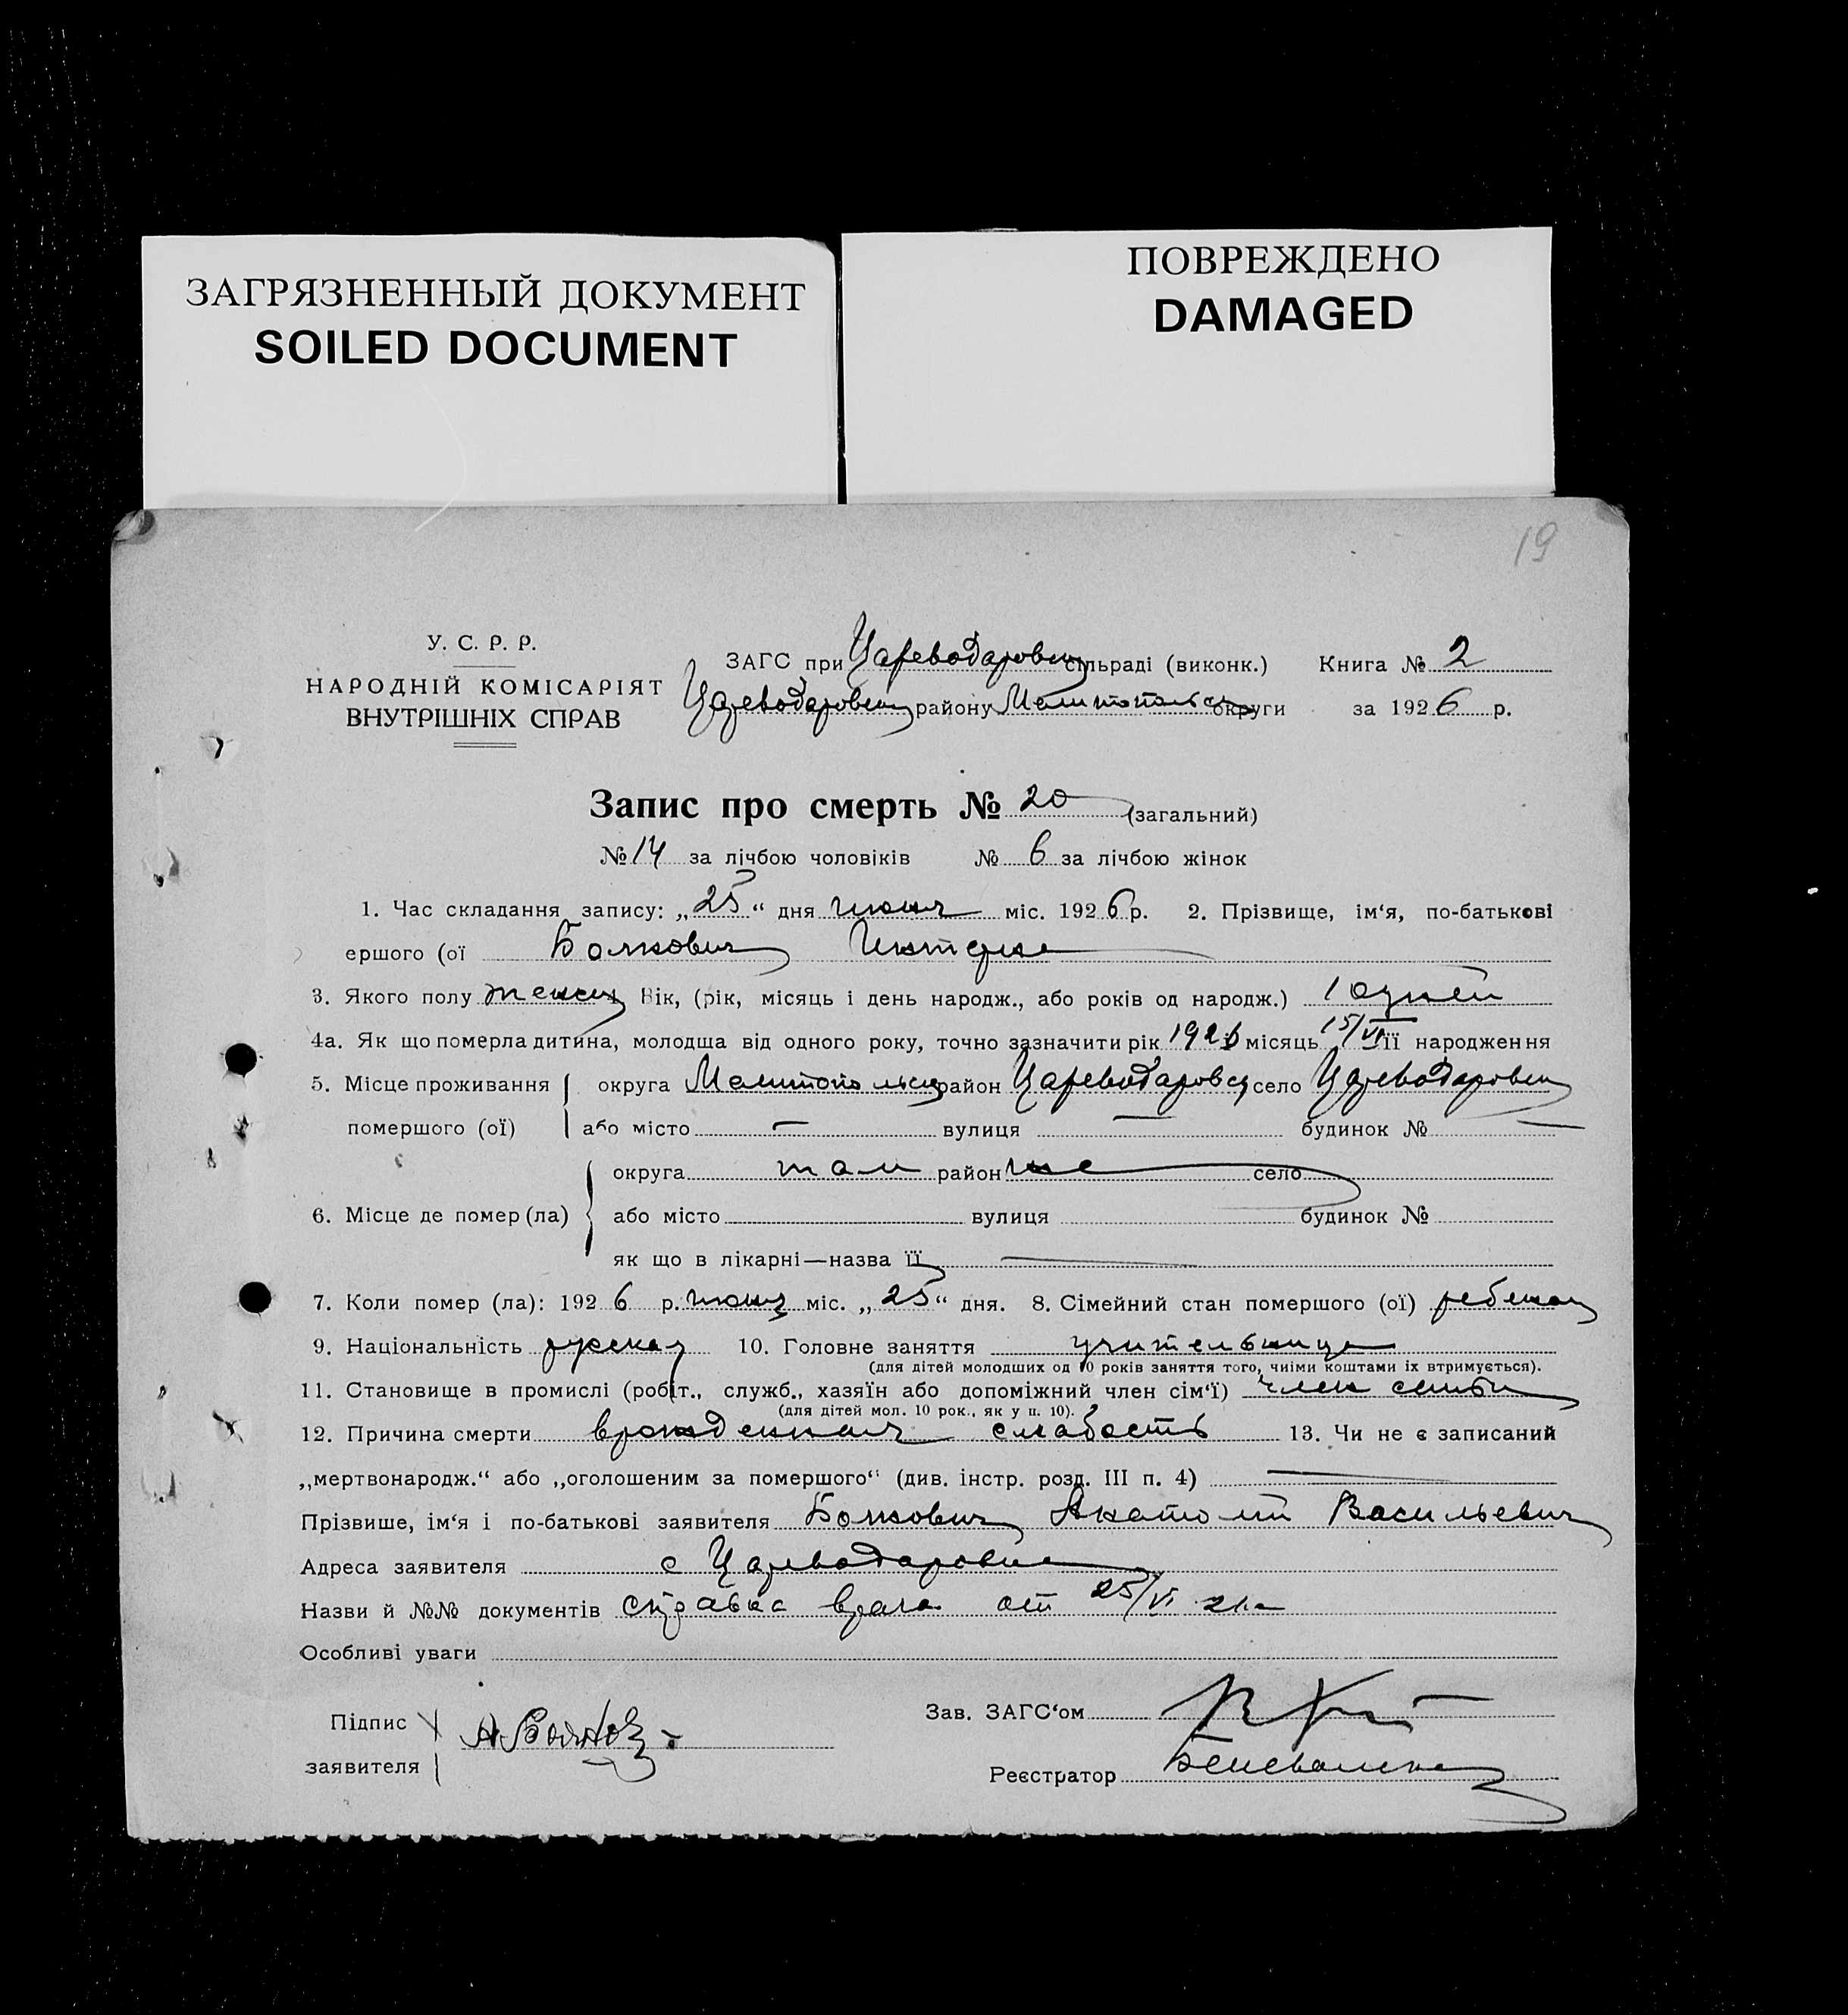 ЗАГРЯЗНЕННЫЙ ДОКУМЕНТ
SOILED DOCUMENT
ПОВРЕЖДЕНО
DAMAGED
19
У. С. Р. Р.
НАРОДНІЙ КОМІСАРІЯТ
ВНУТРІШНІХ СПРАВ
ЗАГС при Цареводаровск сільраді (виконк.) Книга № 2
Цареводаровск району Мелитопольск округи за 1926 р.
Запис про смерть № 20 (загальний)
№ 14 за лічбою чоловіків № 6 за лічбою жінок
1. Час складання запису: „25“ дня июня міс. 1926 р. 2. Прізвище, ім‘я, по-батькові
ершого (ої
3. Якого полу женск Вік, (рік, місяць і день народж., або років од народж.) 1
4а. Як що померла дитина, молодша від одного року, точно зазначити рік 1926 місяць 15/VI її народження
5. Місце проживання округа Мелитопольск район Цареводаровск село Цареводаровка
помершого (ої) або місто — вулиця — будинок № —
округа там район же село
6. Місце де помер (ла) або місто вулиця будинок №
як що в лікарні—назва її —
7. Коли помер (ла): 1926 р. июня міс. „25“ дня. 8. Сімейний стан помершого (ої) ребенок
9. Національність русская 10. Головне заняття учительница
(для дітей молодших од 10 років заняття того, чиїми коштами їх втримується).
11. Становище в промислі (робіт., служб., хазяїн або допоміжний член сім‘ї) член семьи
(для дітей мол. 10 рок., як у п. 10).
12. Причина смерти врожденная слабость 13. Чи не є записаний
„мертвонародж.“ або „оголошеним за помершого“ (див. інстр. розд. III п. 4) —
Прізвише, ім‘я і по-батькові заявителя Анатолий Васильевич
Адреса заявителя с Цареводаровка
Назви й №№ документів справка врача от 25/VI
Особливі уваги
Підпис
заявителя
Зав. ЗАГС‘ом
Реєстратор